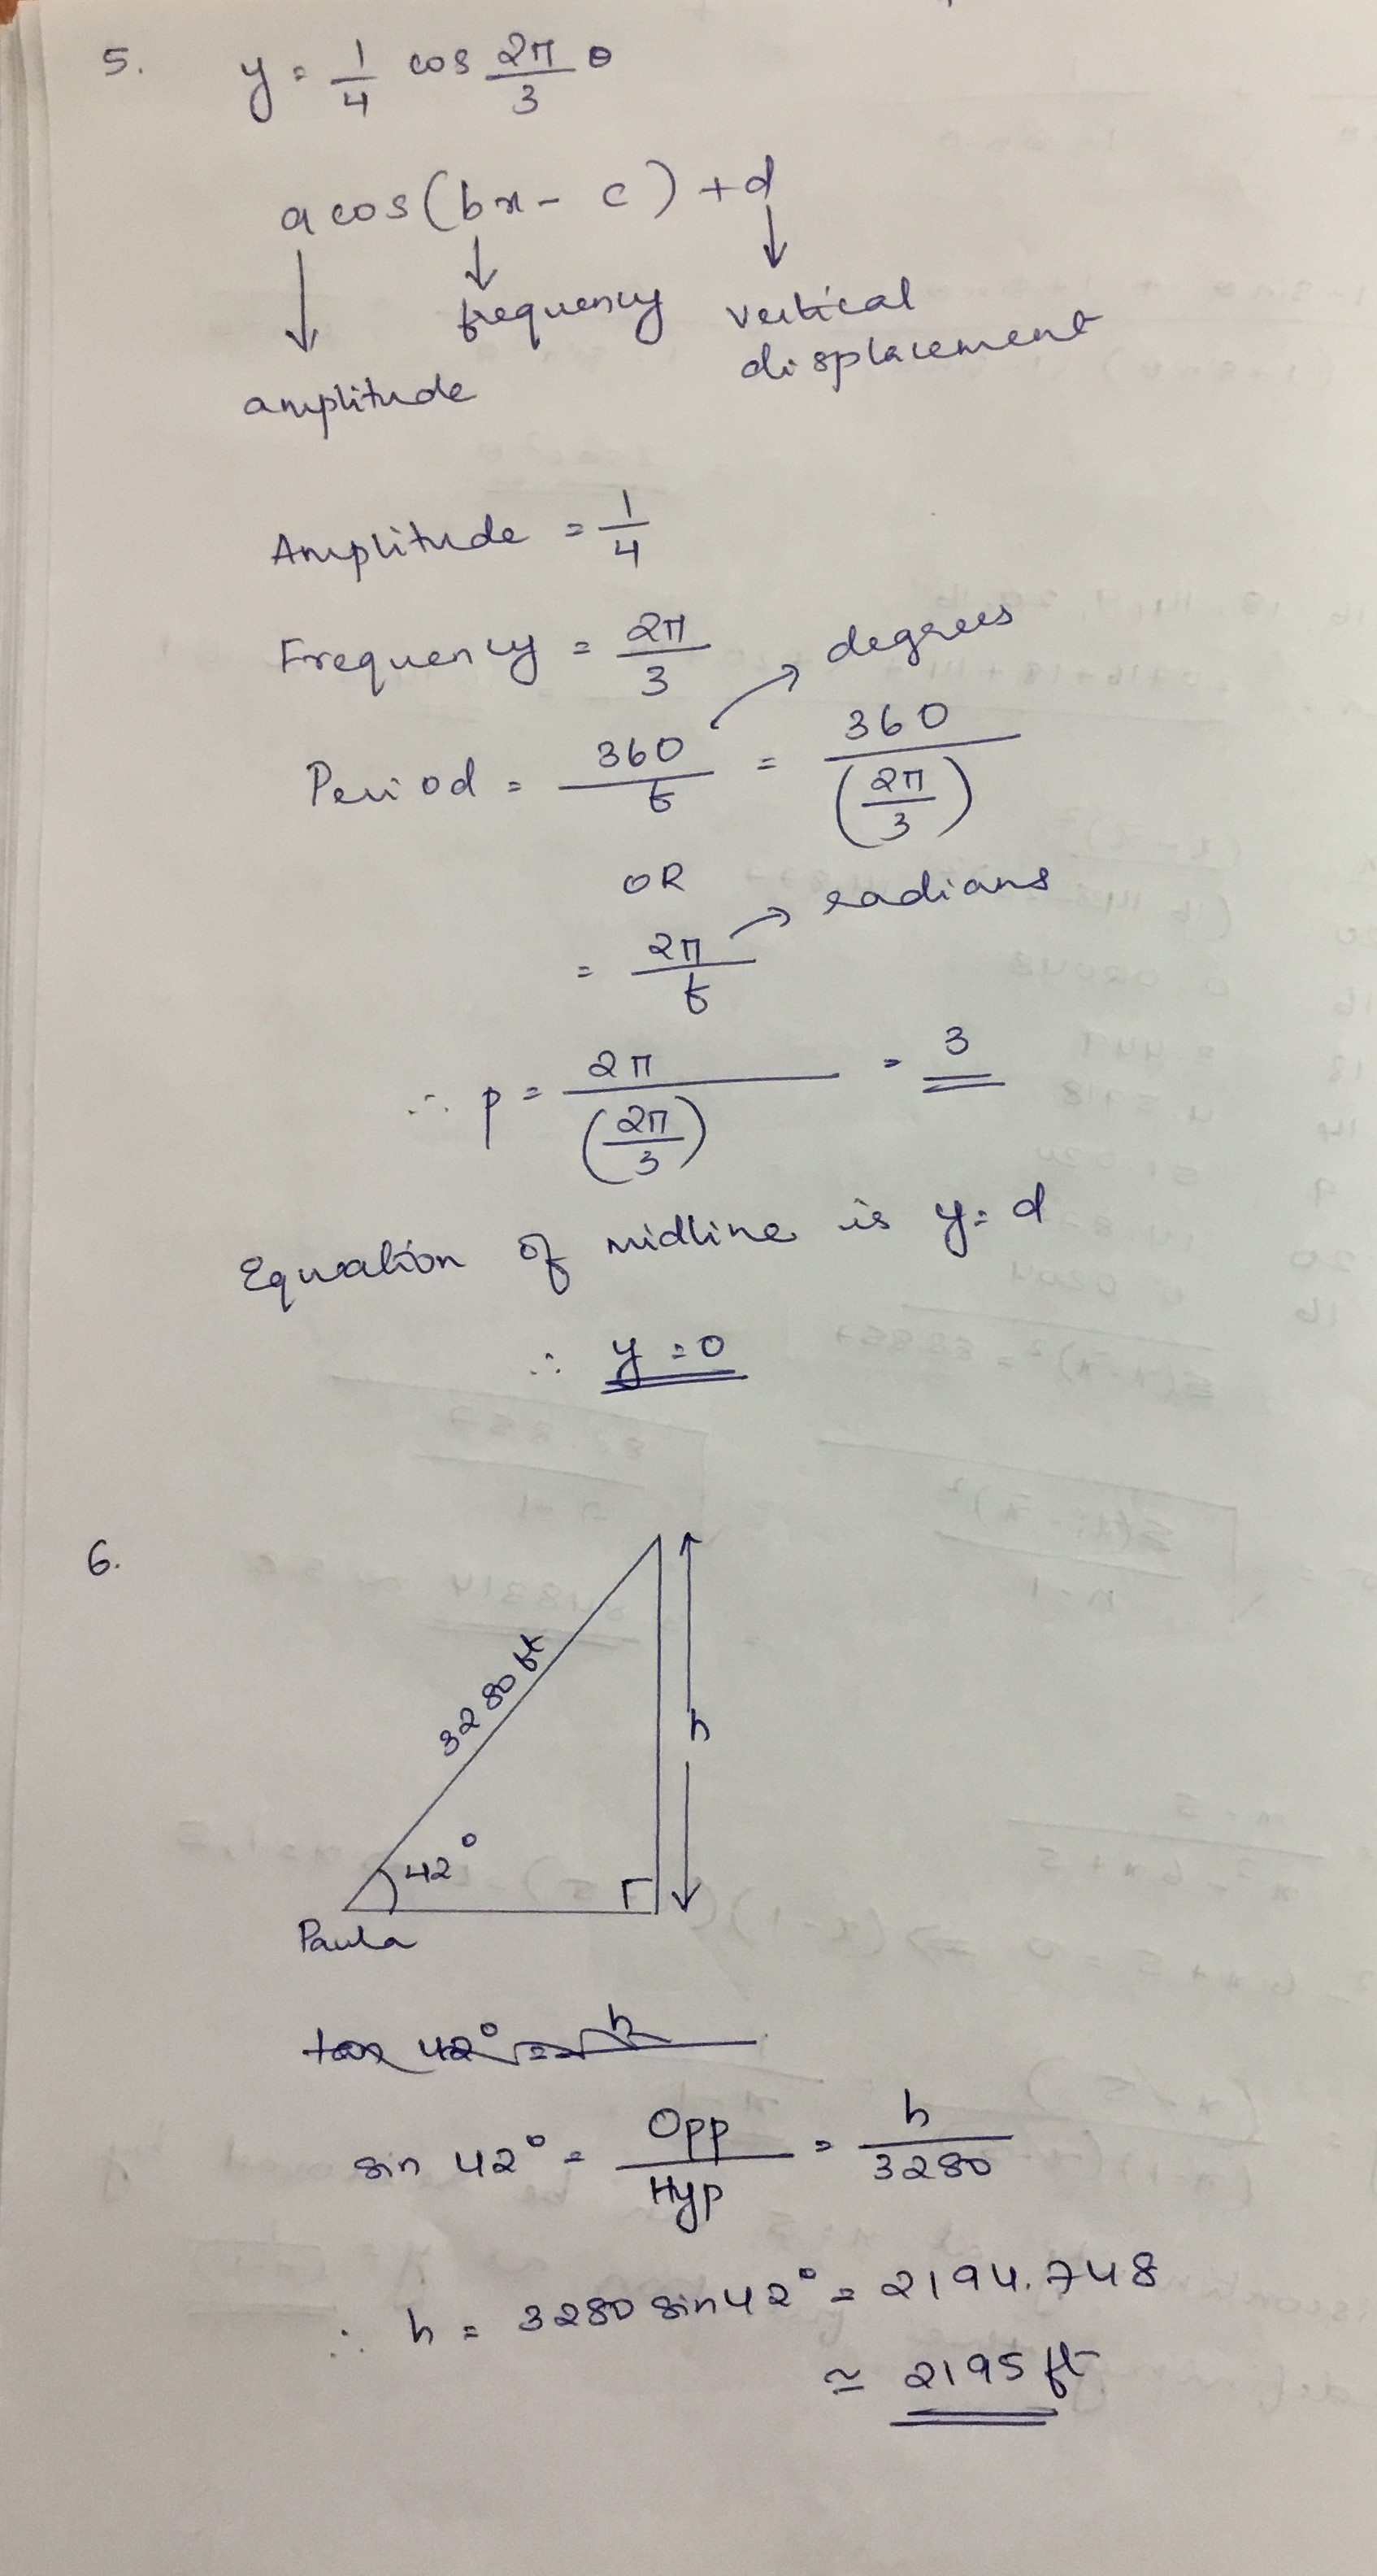 5. y = 1/4 cos 2π/3 θ
a cos (bx - c) + d
frequency vertical
displacement
amplitude
Amplitude = 1/4
Frequency = 2π/3
degrees
Period = 360/f = 360/(2π/3)
OR
radians
= 2π/f
∴ p = 2π/(2π/3) = 3
Equation of midline is y = d
∴ y = 0
6.
3280 ft
h
42°
Paula
tan 42° = h
sin 42° = Opp/Hyp = h/3280
∴ h = 3280 sin 42° = 2194.748
≃ 2195 ft